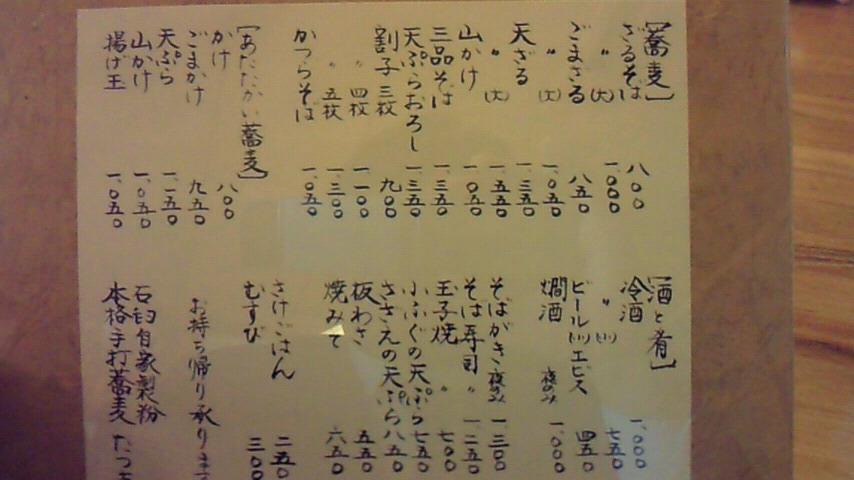 [蕎麦]
ざるそば 八〇〇
〃 (大) 一、〇〇〇
ごまざる 八五〇
〃 (大) 一、〇五〇
天ざる 一、三五〇
〃 (大) 一、五五〇
山かけ 一、〇五〇
三品そば 一、三五〇
天ぷらおろし 一、三五〇
割子 三枚 九〇〇
〃 四枚 一、一〇〇
〃 五枚 一、三〇〇
かつらそば 一、〇五〇
[あたたかい蕎麦]
かけ 八〇〇
ごまかけ 九五〇
天ぷら 一、一五〇
山かけ 一、〇五〇
揚げ玉 一、〇五〇
[酒と肴]
冷酒 一、〇〇〇
〃 (小) 七五〇
ビール(小)エビス 四五〇
燗酒 夜のみ 一、〇〇〇
そばがき 夜のみ 一、三〇〇
そば寿司 〃 一、二五〇
玉子焼 〃 七〇〇
小ふぐの天ぷら 七五〇
ささえの天ぷら 八五〇
板わさ 五五〇
焼みそ 六五〇
さけごはん 二五〇
むすび 三〇〇
お持ち帰り承ります
石臼自家製粉
本格手打蕎麦